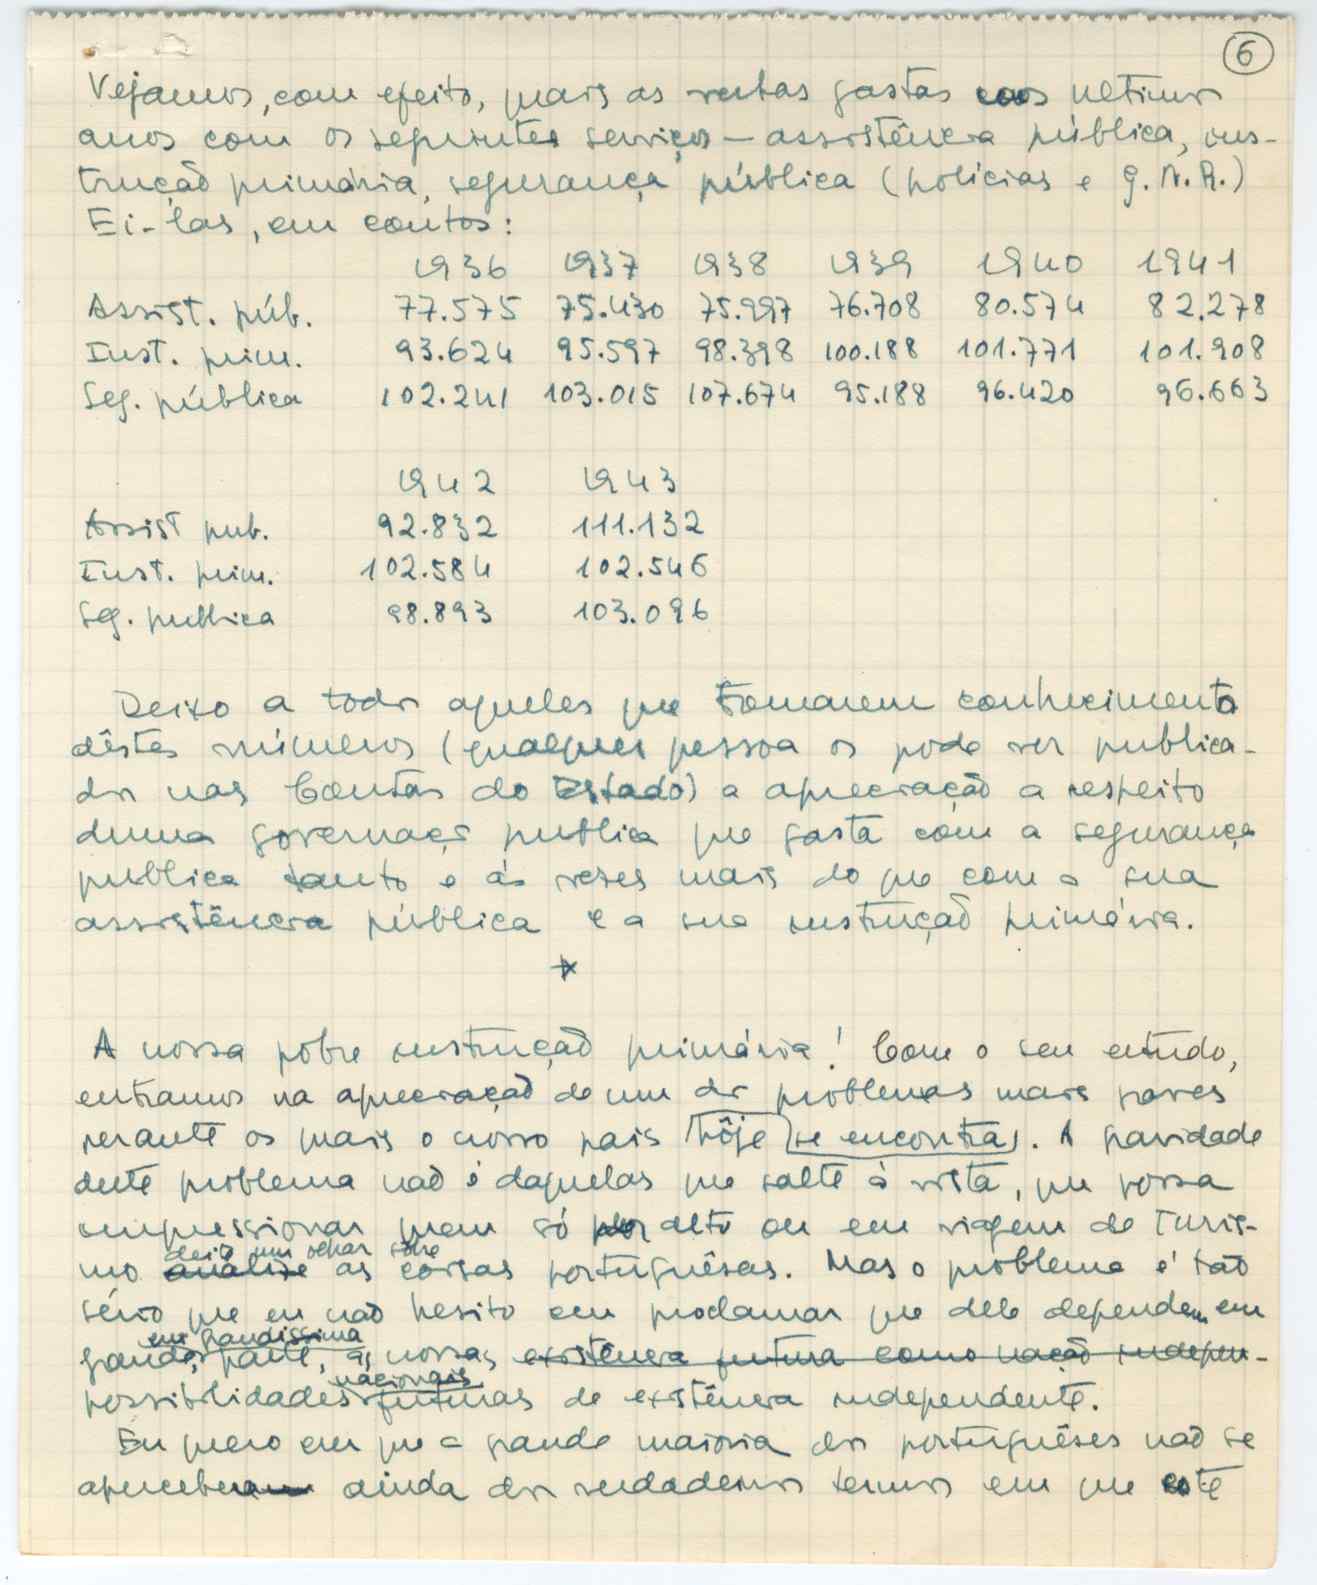 6
Vejamos, com efeito, quais as verbas gastas nos ultimos
anos com os seguintes serviços — assistência pública, ins-
trução primária, segurança pública (polícias e G.N.R.)
Ei-las, em contos:
1936 1937 1938 1939 1940 1941
Assist. púb. 77.575 75.430 75.997 76.708 80.574 82.278
Inst. prim. 93.624 95.597 98.398 100.188 101.771 101.908
Seg. pública 102.241 103.015 107.674 95.188 96.420 96.663
1942 1943
Assist pub. 92.832 111.132
Inst. prim. 102.584 102.546
Seg. publica 98.893 103.096
Deixo a todos aqueles que tomarem conhecimento
dêstes números (qualquer pessoa os pode ver publica-
dos nas Contas do Estado) a apreciação a respeito
duma governação publica que gasta com a segurança
publica tanto e ás vezes mais do que com a sua
assistência pública e a sua instrução primária.
*
A nossa pobre instrução primária! Com o seu estudo,
entramos na apreciação de um dos problemas mais graves
perante os quais o nosso pais hôje se encontra. A gravidade
deste problema não é daquelas que salte á vista, que possa
impressionar quem só por alto ou em viagem de turis-
deite um olhar sôbre
mo análise as coisas portuguêsas. Mas o problema é tão
sério que eu não hesito em proclamar que dele dependem em
em grandissima
grande parte, as nossas existência futura como nação indepen-
nacionais
possibilidades futuras de existência independente.
Eu creio em que a grande maioria dos portuguêses não se
aperceberam ainda dos verdadeiros termos em que este